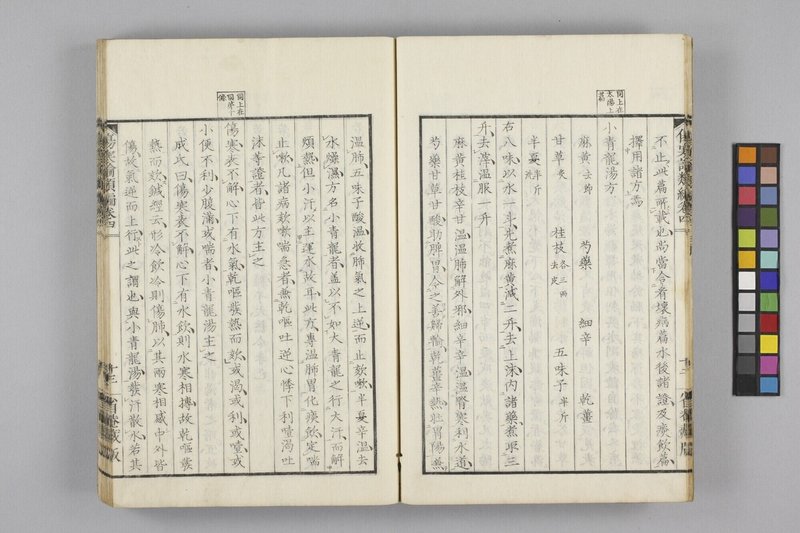 不止此篇所載也尚當合看壞病篇水後諸證及痰飲篇
擇用諸方焉
小青龍湯方
麻黃去節 芍藥 細辛 乾薑
甘草炙 桂枝各三兩去皮 五味子半斤
半夏半斤洗
右八味以水一斗先煮麻黃減二升去上沫內諸藥煮取三
升去滓溫服一升
麻黃桂枝辛甘溫溫肺解外邪細辛辛溫溫腎寒利水道
芍藥甘草甘酸助脾胃令之善歸輸乾薑辛熱壯胃陽無
溫肺五味子酸溫收肺氣之上逆而止欬嗽半夏辛溫去
水燥濕方名小青龍者蓋以不如大青龍之行大汗而解
煩熱但小汗以主運水故耳此方專溫肺胃化痰飲定喘
止嗽凡諸病欬嗽喘急者無乾嘔吐逆心悸下利噎渴吐
沫等證者皆此方主之
傷寒表不解心下有水氣乾嘔發熱而欬或渴或利或噎或
小便不利少腹滿或喘者小青龍湯主之
成氏曰傷寒表不解心下有水飲則水寒相搏故乾嘔發
熱而欬鍼經云形冷飲冷則傷肺以其兩寒相感中外皆
傷故氣逆而上行此之謂也與小青龍湯發汗散水若其
傷寒論類編卷四
省卷藏版